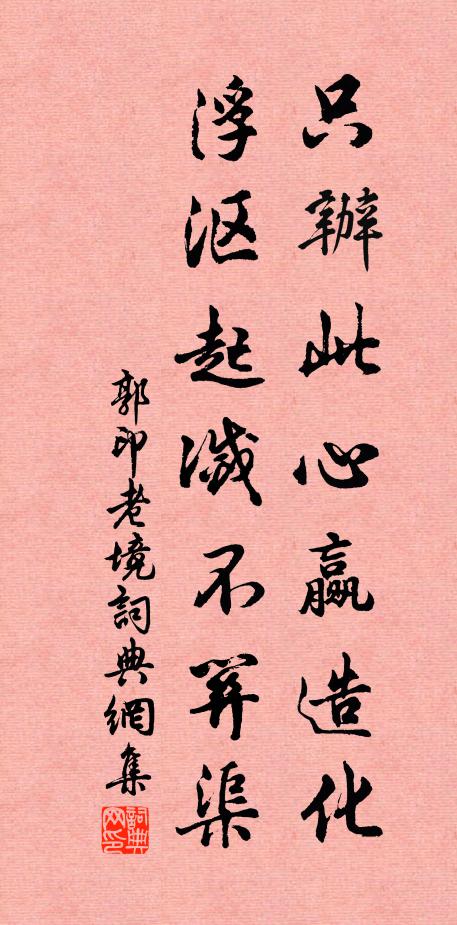 只辦此心贏造化
浮沤起滅不關渠
郭印老境詞典網集
詞典网印